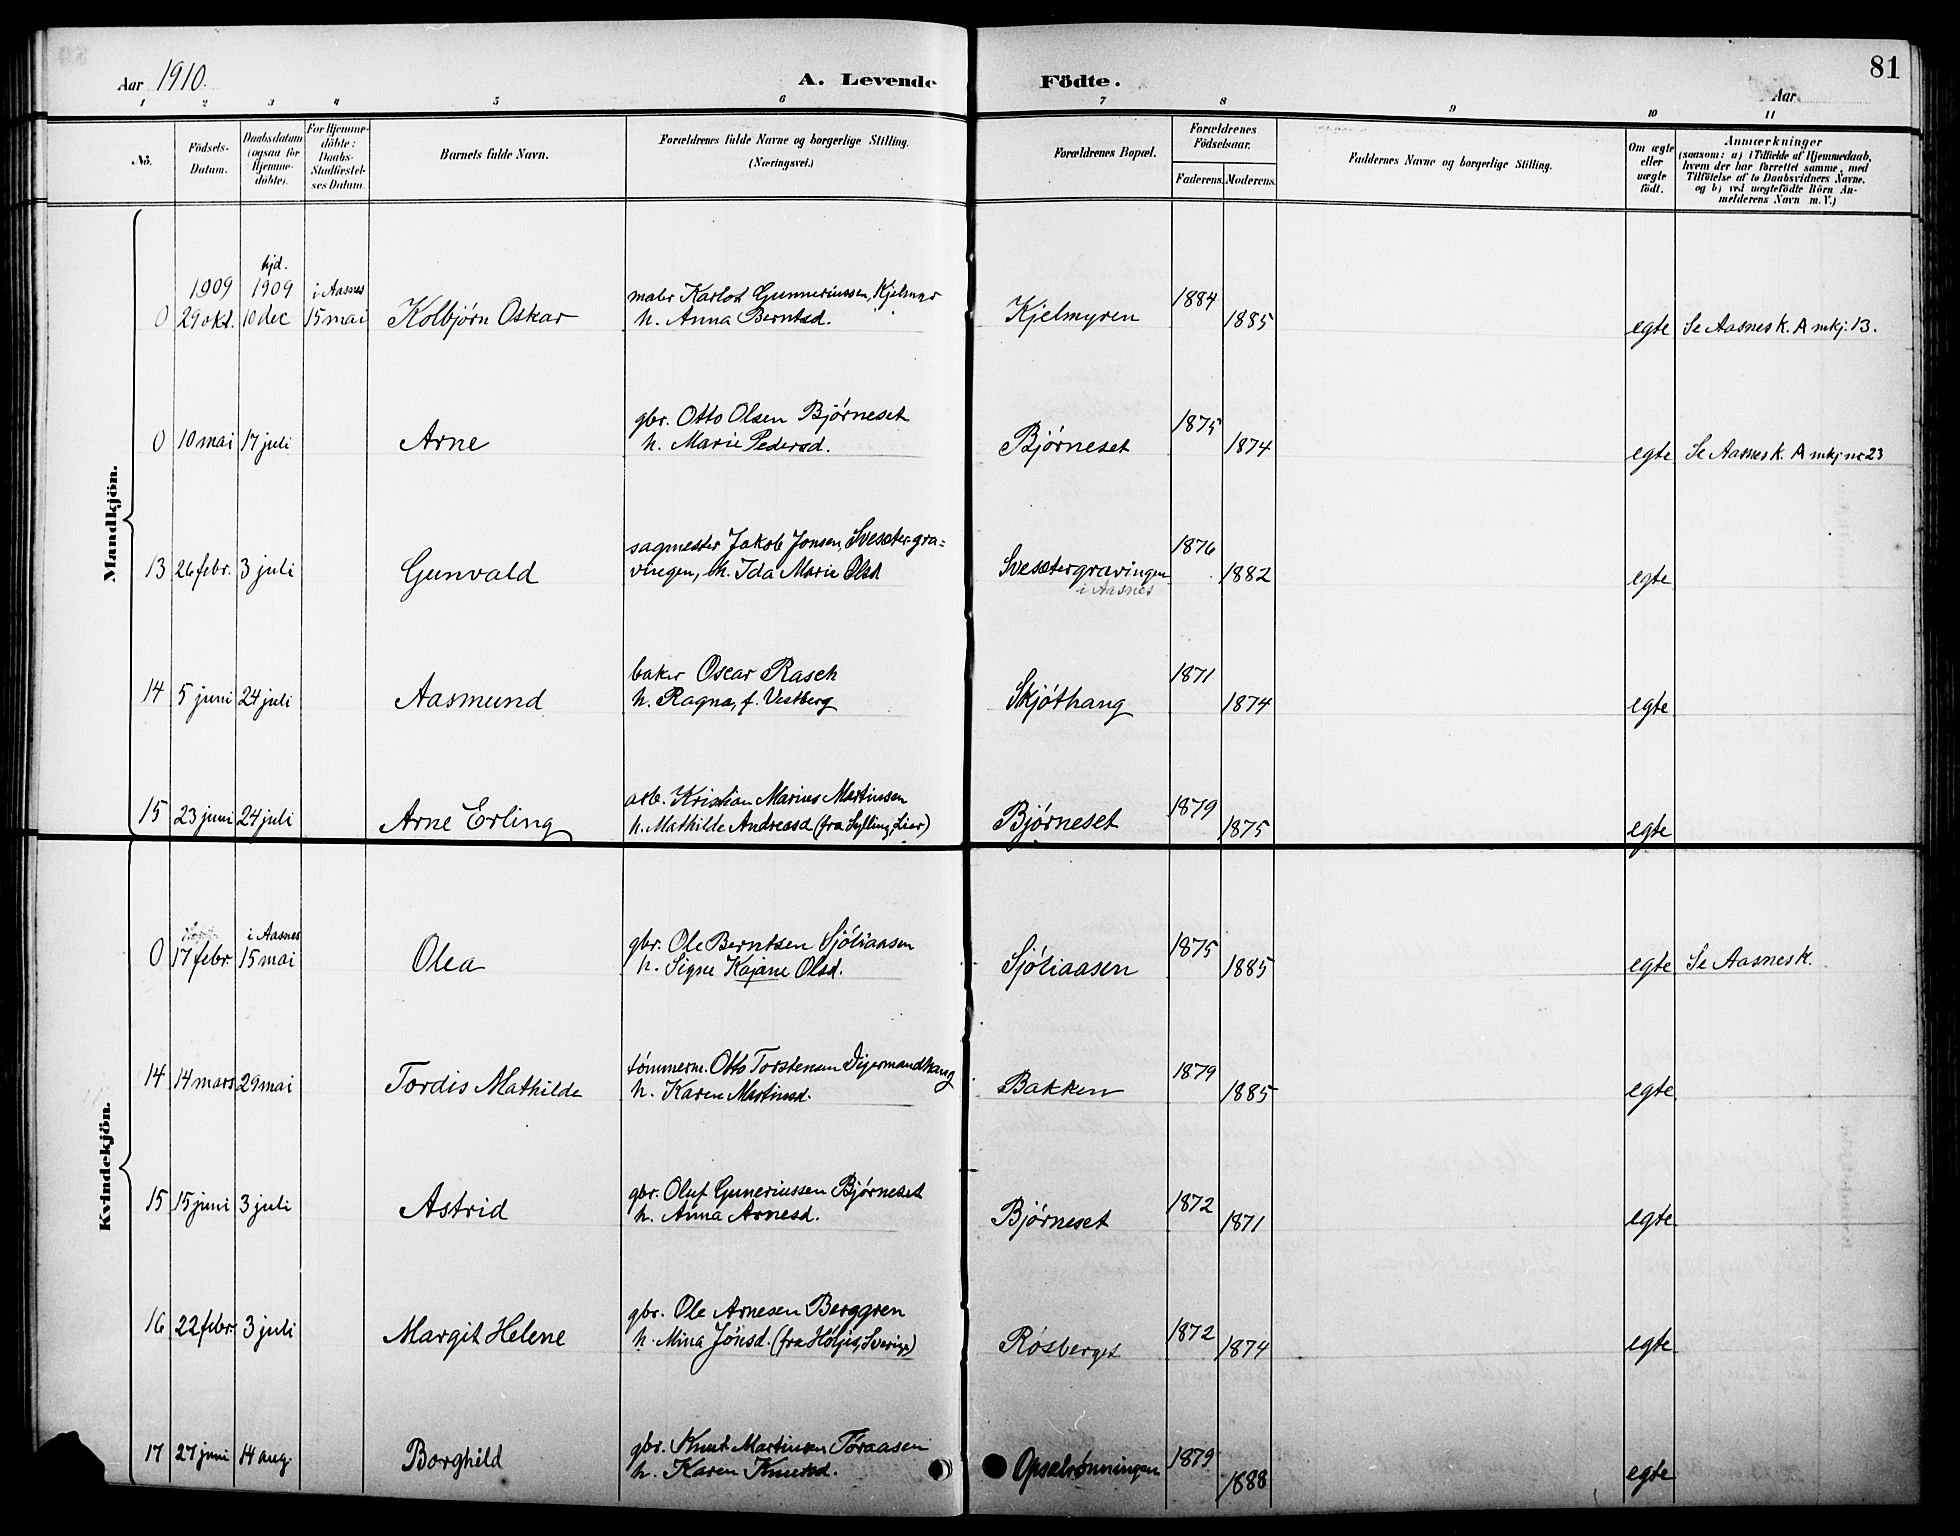 Aar 1910. A. Levende Födte. Aar 81
1 2 3 4 5 6 7 8 9 10 11
No. Födsels-Datum. Daabsdatum (ogsaa for Hjemme-döbte). For Hjemme-döbte: Daabs-Stadfæstel-ses Datum. Barnets fulde Navn. Forældrenes fulde Navne og borgerlige Stilling. (Næringsvei.) Forældrenes Bopæl. Forældrenes Födselsaar. Faderens. Moderens. Faddernes Navne og borgerlige Stilling. Om ægte eller uægte födt. Anmærkninger (saasom: a) i Tilfælde af Hjemmedaab, hvem der har forrettet samme, med Tilföielse af to Daabsvidners Navne, og b) ved uægtefödte Börn An-melderens Navn m. V.)
Mandkjön.
hjd.
1909 1909 i Aasnes maler Karlot Gunneriussen, Kjelmyr 1884
0 29 okt. 10 dec 15 mai Kolbjørn Oskar h. Anna Berntsd. Kjelmyren 1885 egte Se Aasnes k. A mkj. 13.
gbr. Otto Olsen Bjørneset 1875
0 10 mai 17 juli Arne h. Marie Pedersd. Bjørneset 1874 egte Se Aasnes k. A mkj nr 23
sagmester Jakob Jonsen, Svesætergra= 1876
13 26 febr. 3 juli Gunvald vingen, h. Ida Marie Olsd Svesætergravingen 1882 egte
i Aasnes
baker Oscar Rasch 1871
14 5 juni 24 juli Aasmund h. Ragna, f. Vestberg Skjøthaug 1874 egte
arb. Kristian Marius Martinsen 1879
15 23 juni 24 juli Arne Erling h. Mathilde Andreasd (fra Sylling, Lier) Bjørneset 1875 egte
Kvindekjön.
i Aasnes gbr. Ole Berntsen Sjøliaasen 1875
0 17 febr. 15 mai Olea h. Signe Kajane Olsd. Sjøliaasen 1885 egte Se Aasnes k.
tømmerm. Otto Torstensen Digermandhaug 1879
14 14 mars 29 mai Tordis Mathilde h. Karen Martinsd. Bakken 1885 egte
gbr. Oluf Guneriussen Bjørneset 1872
15 15 juni 3 juli Astrid h. Anna Arnesd. Bjørneset 1871 egte
gbr. Ole Arnesen Berggren 1872
16 22 febr. 3 juli Margit Helene h. Mina Jónsd. (fra Höljes, Sverige) Røsberget 1874 egte
gbr. Knut Martinsen Tøraasen 1879
17 27 juni 14 aug. Borghild h. Karen Knutsd. Opsalrønningen 1888 egte